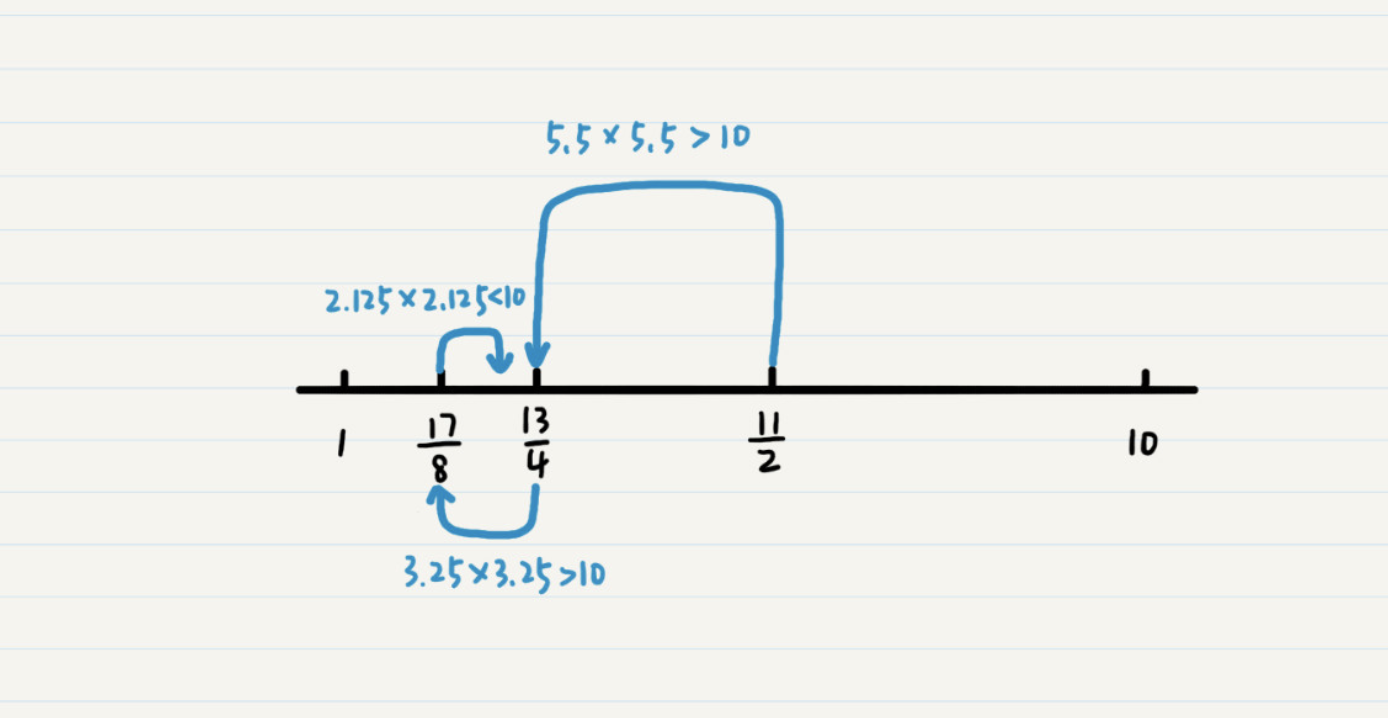 5.5 × 5.5 > 10
2.125 × 2.125 < 10
1 17/8 13/4 11/2 10
3.25 × 3.25 > 10